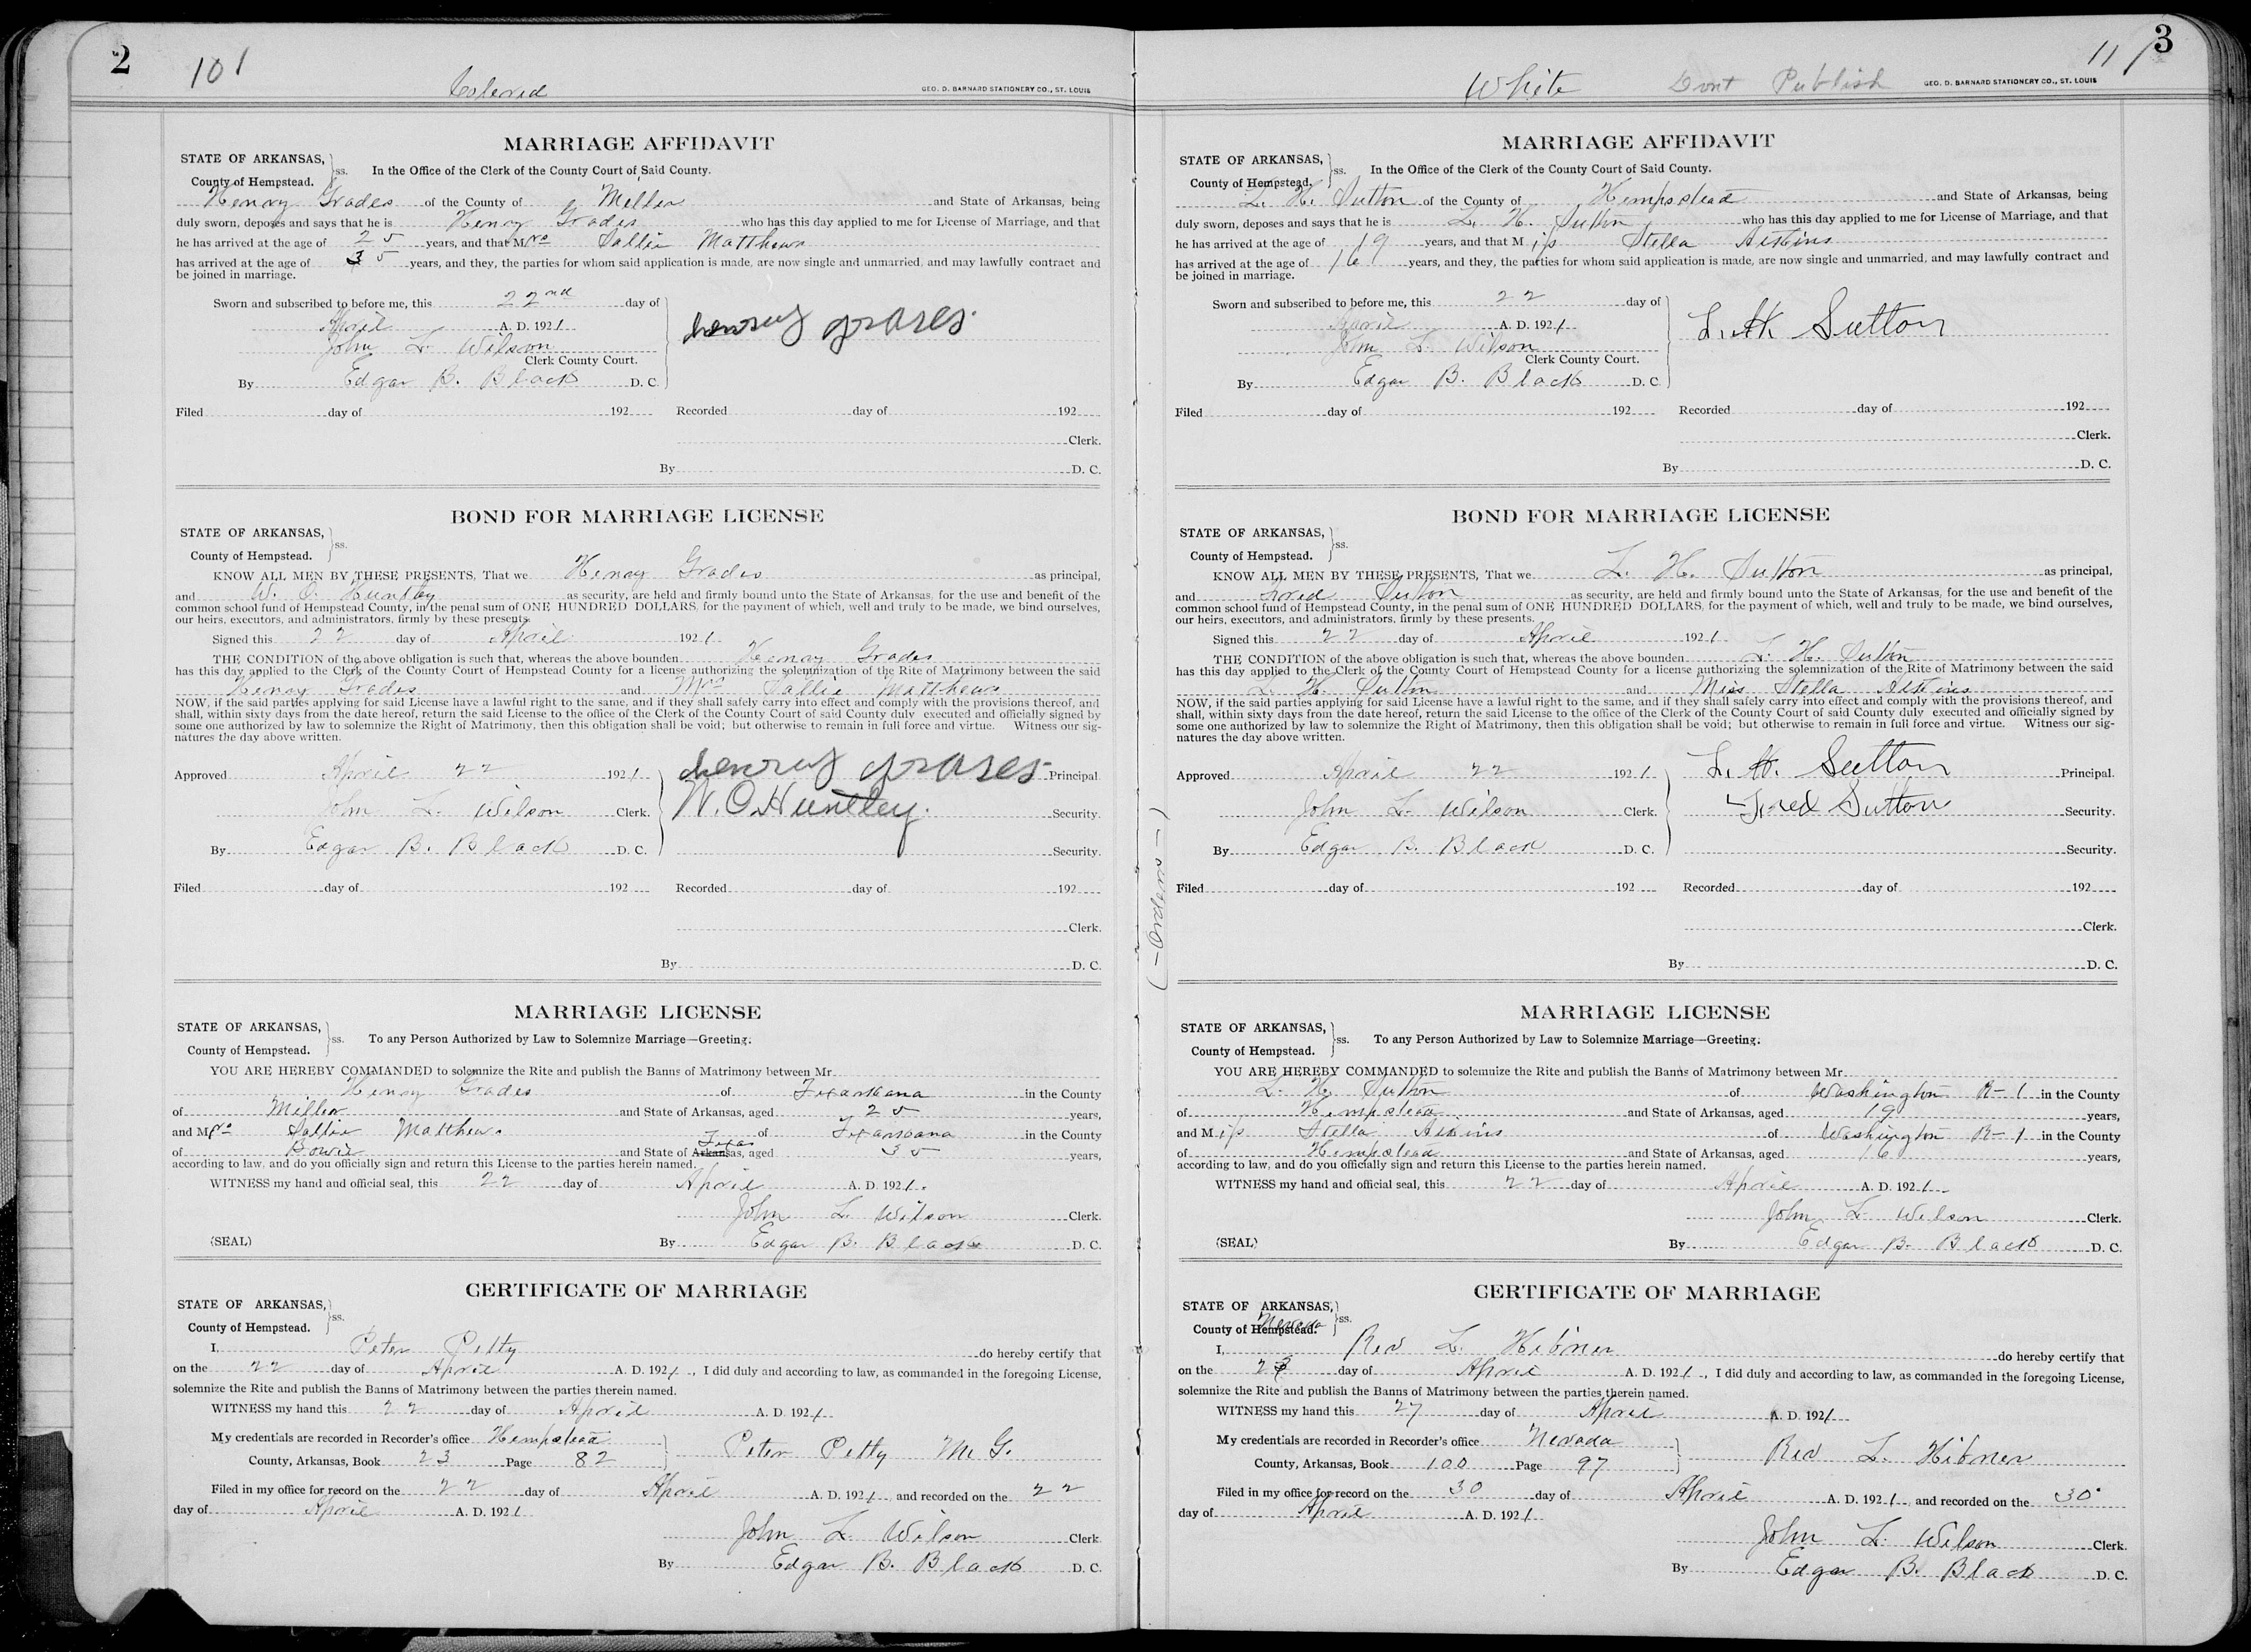 2
101
Colored
GEO. D. BARNARD STATIONERY CO., ST. LOUIS
MARRIAGE AFFIDAVIT
STATE OF ARKANSAS,
County of Hempstead. } ss. In the Office of the Clerk of the County Court of Said County.
Henry Grades of the County of Miller and State of Arkansas, being
duly sworn, deposes and says that he is Henry Grades who has this day applied to me for License of Marriage, and that
he has arrived at the age of 25 years, and that Mrs Sallie Matthews
has arrived at the age of 35 years, and they, the parties for whom said application is made, are now single and unmarried, and may lawfully contract and
be joined in marriage.
Sworn and subscribed to before me, this 22nd day of
April A. D. 1921
John L. Wilson
Clerk County Court.
By Edgar B. Black D. C.
henry grases
Filed day of 192 Recorded day of 192
Clerk.
By D. C.
BOND FOR MARRIAGE LICENSE
STATE OF ARKANSAS,
County of Hempstead. } ss.
KNOW ALL MEN BY THESE PRESENTS, That we Henry Grades as principal,
and W. O. Huntley as security, are held and firmly bound unto the State of Arkansas, for the use and benefit of the
common school fund of Hempstead County, in the penal sum of ONE HUNDRED DOLLARS, for the payment of which, well and truly to be made, we bind ourselves,
our heirs, executors, and administrators, firmly by these presents.
Signed this 22 day of April 1921
THE CONDITION of the above obligation is such that, whereas the above bounden Henry Grades
has this day applied to the Clerk of the County Court of Hempstead County for a license authorizing the solemnization of the Rite of Matrimony between the said
Henry Grades and Mrs Sallie Matthews
NOW, if the said parties applying for said License have a lawful right to the same, and if they shall safely carry into effect and comply with the provisions thereof, and
shall, within sixty days from the date hereof, return the said License to the office of the Clerk of the County Court of said County duly executed and officially signed by
some one authorized by law to solemnize the Right of Matrimony, then this obligation shall be void; but otherwise to remain in full force and virtue. Witness our sig-
natures the day above written.
Approved April 22 1921 henry grases Principal
John L. Wilson Clerk. W. O. Huntley. Security.
By Edgar B. Black D. C. Security.
Filed day of 192 Recorded day of 192
Clerk.
By D. C.
MARRIAGE LICENSE
STATE OF ARKANSAS,
County of Hempstead. } ss. To any Person Authorized by Law to Solemnize Marriage—Greeting:
YOU ARE HEREBY COMMANDED to solemnize the Rite and publish the Banns of Matrimony between Mr
Henry Grades of Texarkana in the County
of Miller and State of Arkansas, aged 25 years,
and Mrs Sallie Matthews of Texarkana in the County
of Bowie and State of Arkansas, Texas aged 35 years,
according to law, and do you officially sign and return this License to the parties herein named.
WITNESS my hand and official seal, this 22 day of April A. D. 1921.
John L. Wilson Clerk.
(SEAL) By Edgar B. Black D. C.
CERTIFICATE OF MARRIAGE
STATE OF ARKANSAS,
County of Hempstead. } ss.
I, Peter Petty do hereby certify that
on the 22 day of April A. D. 1921, I did duly and according to law, as commanded in the foregoing License,
solemnize the Rite and publish the Banns of Matrimony between the parties therein named.
WITNESS my hand this 22 day of April A. D. 1921
My credentials are recorded in Recorder's office Hempstead
County, Arkansas, Book 23 Page 82 Peter Petty M. G.
Filed in my office for record on the 22 day of April A. D. 1921, and recorded on the 22
day of April A. D. 1921
John L. Wilson Clerk
By Edgar B. Black D. C.
3
111
White Dont Publish
GEO. D. BARNARD STATIONERY CO., ST. LOUIS
MARRIAGE AFFIDAVIT
STATE OF ARKANSAS,
County of Hempstead. } ss. In the Office of the Clerk of the County Court of Said County.
L. H. Sutton of the County of Hempstead and State of Arkansas, being
duly sworn, deposes and says that he is L. H. Sutton who has this day applied to me for License of Marriage, and that
he has arrived at the age of 19 years, and that Miss Stella Askins
has arrived at the age of 16 years, and they, the parties for whom said application is made, are now single and unmarried, and may lawfully contract and
be joined in marriage.
Sworn and subscribed to before me, this 22 day of
April A. D. 1921
John L. Wilson
Clerk County Court.
By Edgar B. Black D. C.
L. H. Sutton
Filed day of 192 Recorded day of 192
Clerk.
By D. C.
BOND FOR MARRIAGE LICENSE
STATE OF ARKANSAS,
County of Hempstead. } ss.
KNOW ALL MEN BY THESE PRESENTS, That we L. H. Sutton as principal,
and Fred Sutton as security, are held and firmly bound unto the State of Arkansas, for the use and benefit of the
common school fund of Hempstead County, in the penal sum of ONE HUNDRED DOLLARS, for the payment of which, well and truly to be made, we bind ourselves,
our heirs, executors, and administrators, firmly by these presents.
Signed this 22 day of April 1921
THE CONDITION of the above obligation is such that, whereas the above bounden L. H. Sutton
has this day applied to the Clerk of the County Court of Hempstead County for a license authorizing the solemnization of the Rite of Matrimony between the said
L. H. Sutton and Miss Stella Askins
NOW, if the said parties applying for said License have a lawful right to the same, and if they shall safely carry into effect and comply with the provisions thereof, and
shall, within sixty days from the date hereof, return the said License to the office of the Clerk of the County Court of said County duly executed and officially signed by
some one authorized by law to solemnize the Right of Matrimony, then this obligation shall be void; but otherwise to remain in full force and virtue. Witness our sig-
natures the day above written.
Approved April 22 1921 L. H. Sutton Principal.
John L. Wilson Clerk. Fred Sutton Security.
By Edgar B. Black D. C. Security.
(-Orders-)
Filed day of 192 Recorded day of 192
Clerk.
By D. C.
MARRIAGE LICENSE
STATE OF ARKANSAS,
County of Hempstead. } ss. To any Person Authorized by Law to Solemnize Marriage—Greeting:
YOU ARE HEREBY COMMANDED to solemnize the Rite and publish the Banns of Matrimony between Mr
L. H. Sutton of Washington R-1 in the County
of Hempstead and State of Arkansas, aged 19 years,
and Miss Stella Askins of Washington R-1 in the County
of Hempstead and State of Arkansas, aged 16 years,
according to law, and do you officially sign and return this License to the parties herein named.
WITNESS my hand and official seal, this 22 day of April A. D. 1921.
John L. Wilson Clerk.
(SEAL) By Edgar B. Black D. C.
CERTIFICATE OF MARRIAGE
STATE OF ARKANSAS,
County of Hempstead. Nevada } ss.
I, Rev L. Hibner do hereby certify that
on the 23 day of April A. D. 1921, I did duly and according to law, as commanded in the foregoing License,
solemnize the Rite and publish the Banns of Matrimony between the parties therein named.
WITNESS my hand this 27 day of April A. D. 1921
My credentials are recorded in Recorder's office Nevada
County, Arkansas, Book 100 Page 97 Rev L. Hibner
Filed in my office for record on the 30 day of April A. D. 1921, and recorded on the 30
day of April A. D. 1921
John L. Wilson Clerk.
By Edgar B. Black D. C.